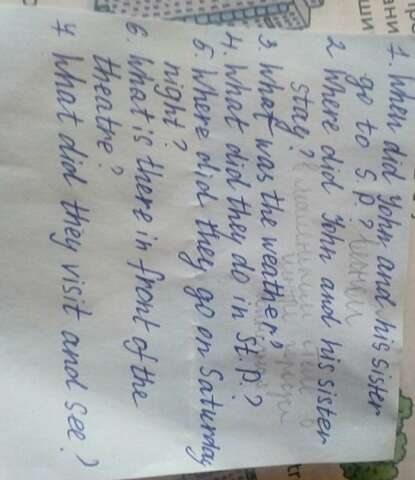 1. When did John and his sister
go to S.P.?
2 Where did John and his sister
stay?
3. What was the weather?
4. What did they do in St.P.?
5. Where did they go on Saturday
night?
6. What is there in front of the
theatre?
7 What did they visit and see?